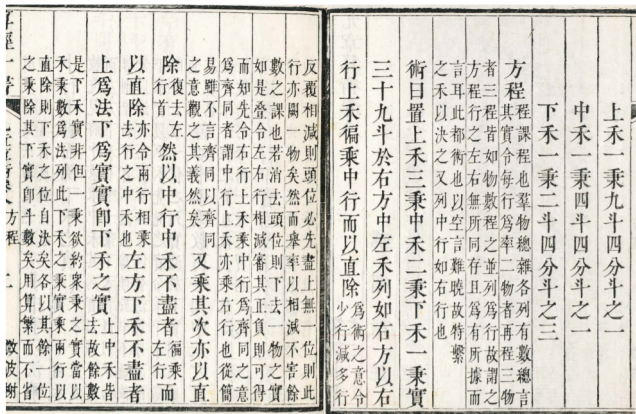 上禾一秉九斗四分斗之一
中禾一秉四斗四分斗之一
下禾一秉二斗四分斗之三
方程 程課程也羣物總雜各列有數總言
其實令每行爲率二物者再程三物
者三程皆如物數程之並列爲行故謂之
方程行之左右無所同存且爲有所據而
言耳此都術也以空言難曉故特繫
之禾以決之又列中行如右行也
術曰置上禾三秉中禾二秉下禾一秉實
三十九斗於右方中左禾列如右方以右
行上禾徧乘中行而以直除 爲術之意令少行減多行
反覆相減則頭位必先盡上無一位則此
行亦闕一物矣然而舉率以相減不害餘
數之課也若消去頭位則下去一物之實
如是疊令左右行相減審其正負則可得
而知先令右行上禾乘中行爲齊同之意
爲齊同者謂中行上禾亦乘右行也從簡
易雖不言齊同以齊同
之意觀之其義然矣 又乘其次亦以直
除 復去左行首 然以中行中禾不盡者 徧乘左行 而
以直除 亦令兩行相乘去行之中禾也 左方下禾不盡者
上爲法下爲實實卽下禾之實 上中禾皆去故餘數
是下禾實非但一秉欲約衆秉之實當以
禾秉數爲法列此下禾之秉實乘兩行以
直除則下禾之位自決矣各以其餘一位
之乘除其下實卽斗數矣用算繁而不省
算經十書 九章算術卷八 方程 二 微波榭